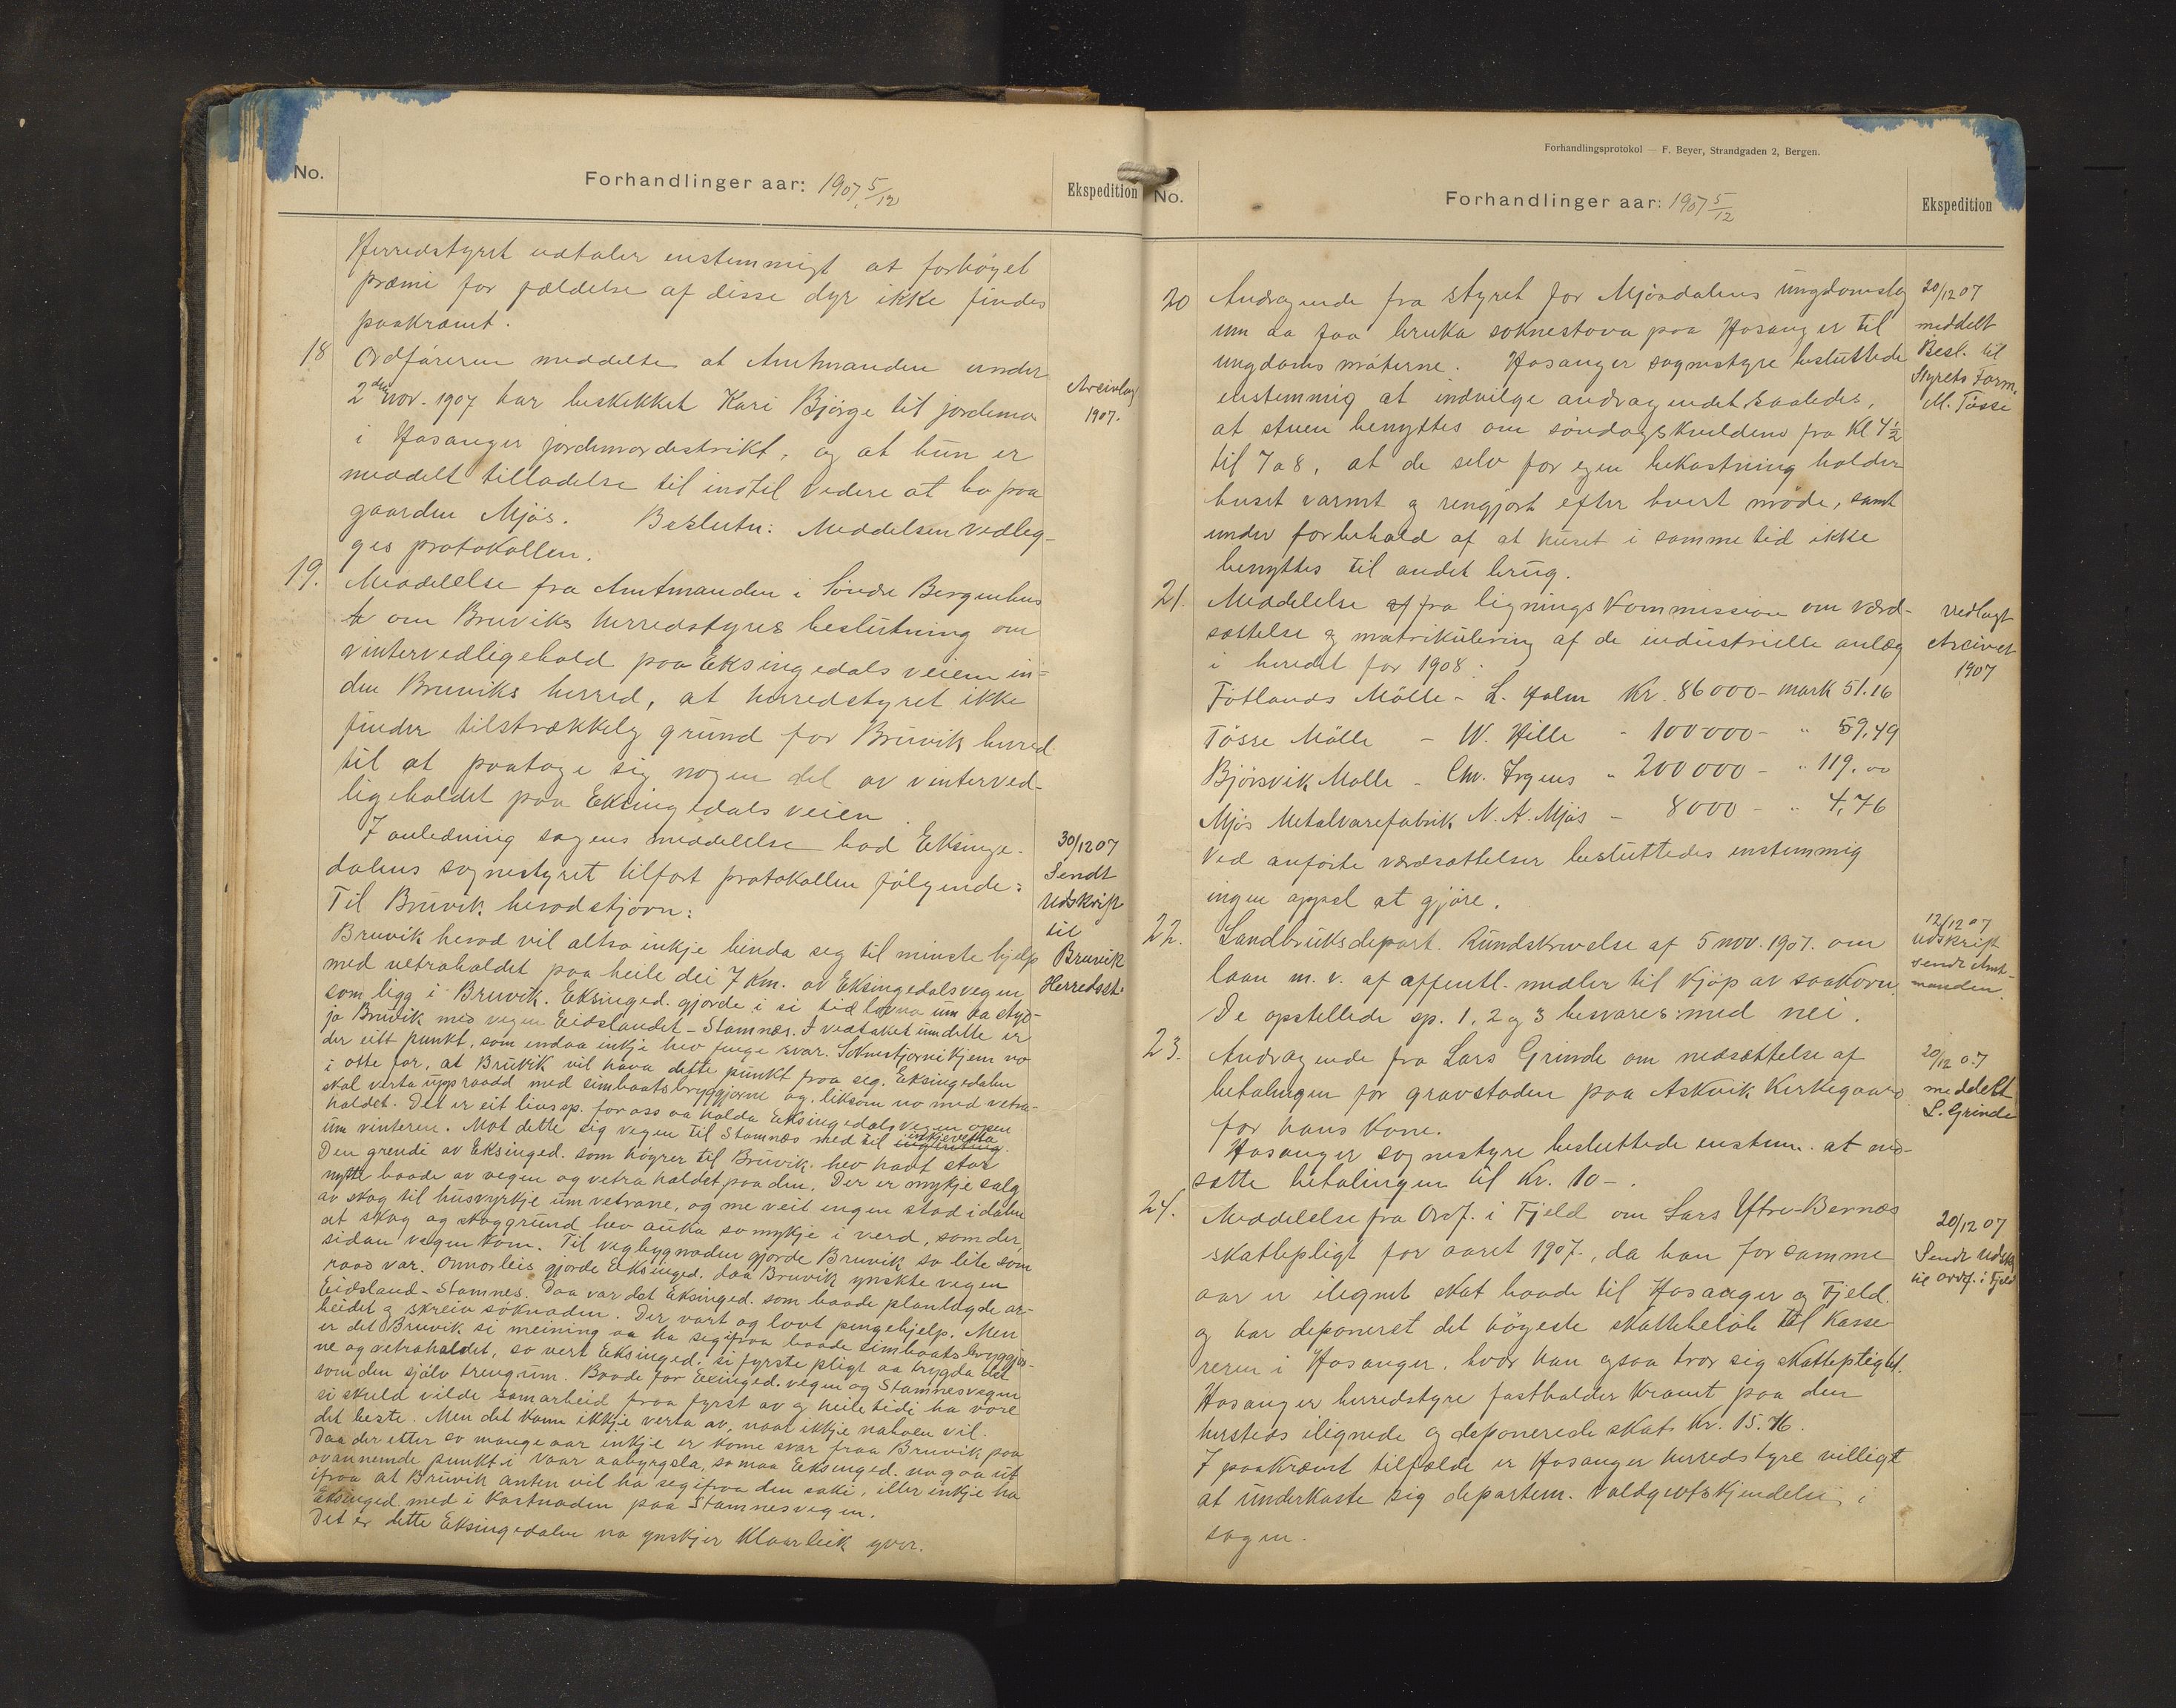 No.
Forhandlinger aar: 1907 5/12
Ekspedition
Herredstyret udtaler enstemmigt at forhøyet
præmi for fældelse af disse dyr ikke findes
paakrævet.
18 Ordføreren meddelte at Amtmanden under
2den nov. 1907 har beskikket Kari Bjørge til jordemor
i Hosanger jordemordistrikt, og at hun er
meddelt tilladelse til indtil videre at bo paa
gaarden Mjøs. Beslutn: Meddelsen vedlæg-
ges protokollen.
Arcivlag
1907.
19. Meddelelse fra Amtmanden i Søndre Bergenhus
om Bruviks herredstyres beslutning om
vintervedligehold paa Eksingedals veien in-
den Bruviks herred, at herredstyret ikke
finder tilstrækkelig grund for Bruvik herred
til at paatage sig nogen del av vinterved-
ligeholdet paa Eksingedals veien.
I anledning sagens meddelelse bad Eksinge-
dalens sognestyret tilført protokollen følgende:
Til Bruvik heradstjorn:
Bruvik herad vil altso inkje binda seg til minste hjelp
med vetrahaldet paa heile dei 7 Km. av Eksingedalsvegen
som ligg i Bruvik. Eksinged. gjorde i si tid lovna um aa styd-
ja Bruvik med vegen Eidslandet - Stamnes. I vedtaket um dette er
der eitt punkt, som endaa inkje hev fenge svar. Soknestjorni kjem no
i otte for, at Bruvik vil hava dette punkt fraa seg. Eksingedalen
skal verta uppraadd med dimbaatsbryggjorne og, liksom no med vetra-
haldet. Det er eit livssp. for oss aa halda Eksingedalsvegen open
um vinteren. Mot dette sig vegen til Stamnes med til inkjeverta.
Den grendi av Eksinged. som høyrer til Bruvik hev havt stor
nytte baade av vegen og vetrahaldet paa den. Der er mykje salg
av skog til husvyrkje um vetrane, og me veit ingen stad i dalen
at skog og skoggrund hev auka so mykje i verd, som der,
sidan vegen kom. Til vegbygnaden gjorde Bruvik so lite som
raad var. Onnorleis gjorde Eksinged. daa Bruvik ynskte vegen
Eidsland-Stamnes. Daa var det Eksinged. som baade planlagde ar-
beidet og skreiv søknaden. Der vart og lovt pengehjelp. Men
er det Bruvik si meining aa ha seg ifraa baade dimbaatsbryggjor-
ne og vetrahaldet, so vert Eksinged. si fyrste pligt aa trygda det
som den sjølv treng um. Baade for Eksinged.vegen og Stamnesvegen
si skuld vilde samarbeid fraa fyrst av og heile tidi ha vore
det beste. Men det kann ikkje verta av, naar ikkje naboen vil.
Daa der etter so mange aar inkje er kome svar fraa Bruvik paa
ovannemde punkt i vaar aabyrgsla, so maa Eksinged. no gaa ut
ifraa at Bruvik anten vil ha seg ifraa den saki, eller inkje ha
Eksinged. med i kostnaden paa Stamnesvegen.
Det er dette Eksingedalen no ynskjer klaarleik yver.
30/12 07
Sendt
Udskrift
til
Bruvik
Herredsst.
Forhandlingsprotokol — F. Beyer, Strandgaden 2, Bergen.
No.
Forhandlinger aar: 1907 5/12
Ekspedition
20 Andragende fra styret for Mjøsdalens ungdomslag
um aa faa bruka soknestova paa Hosanger til
ungdomsmøterne. Hosanger sognestyre besluttede
enstemmig at indvilge andragendet saaledes,
at stuen benyttes om søndagskveldene fra Kl 4½
til 7 a 8, at de selv for egen bekostning holder
huset varmt og rengjort efter hvert møde, samt
under forbehold af at huset i samme tid ikke
benyttes til andet brug.
20/12 07
meddelt
Besl. til
Styrets Form.
M. Tøsse
21. Meddelelse fra lignings kommission om værd-
sættelse og matrikulering af de industrielle anlæg
i herredet for 1908:
Fotlands Mølle - L. Holm Kr. 86000 - mark 51.16
Tøsse Mølle - W. Hille - 100000 - " 59,49
Bjørsvik Mølle - Chr. Irgens " 200000 - " 119.00
Mjøs Metalvarefabrik N. A. Mjøs - 8000 - " 4,76
Ved anførte værdsættelser besluttedes enstemmig
ingen appel at gjøre.
vedlagt
Arcivet
1907
22. Landbruksdepart. Rundskrivelse af 5 nov. 1907. om
laan m. v. af offentl. midler til kjøp av saakorn.
De opstillede sp. 1, 2 og 3 besvares med nei.
12/12 07
Udskrift
sendt Amt-
manden.
23. Andragende fra Lars Grinde om nedsættelse af
betalingen for gravstaden paa Askvik Kirkegaard
for hans Kone.
Hosanger sognestyre besluttede enstem. at ned-
sætte betalingen til Kr. 10 -.
20/12 07
meddelt
L. Grinde
24. Meddelelse fra Ordf. i Fjeld om Lars Yttre-Bernæs
skattepligt for aaret 1907, da han for samme
aar er ilignet skat baade til Hosanger og Fjeld.
og har deponeret det høyeste skattebeløb til Kasse-
reren i Hosanger, hvor han ogsaa tror sig skattepligtig.
Hosanger herredstyre fastholder kravet paa den
hersteds ilignede og deponerede skat Kr. 15.76.
I paakrævet tilfælde er Hosanger herredstyre villigt
at underkaste sig departem. voldgiftskjendelse i
sagen.
20/12 07
Sendt Udsk.
til ordf. i Fjeld